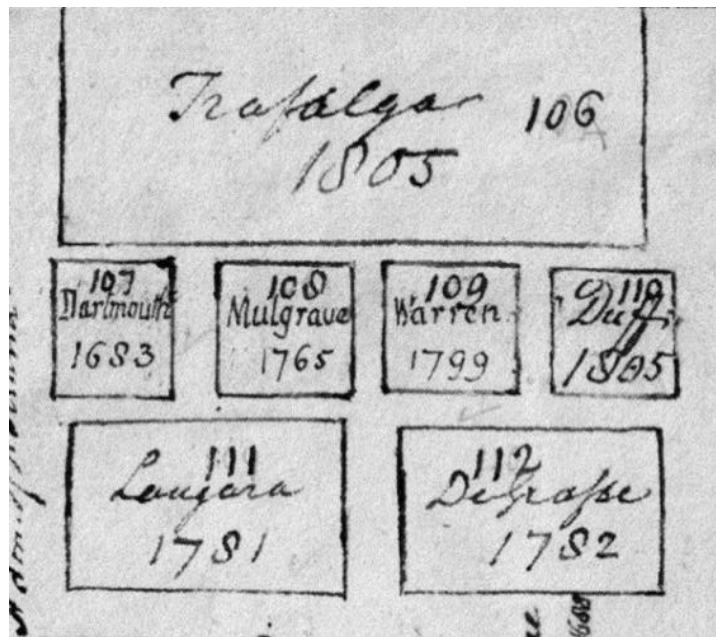 Trafalgar 106
1805
107
Dartmouth
1683
108
Mulgrave
1765
109
Warren
1799
110
Duff
1805
111
Langara
1781
112
DeGrasse
1782